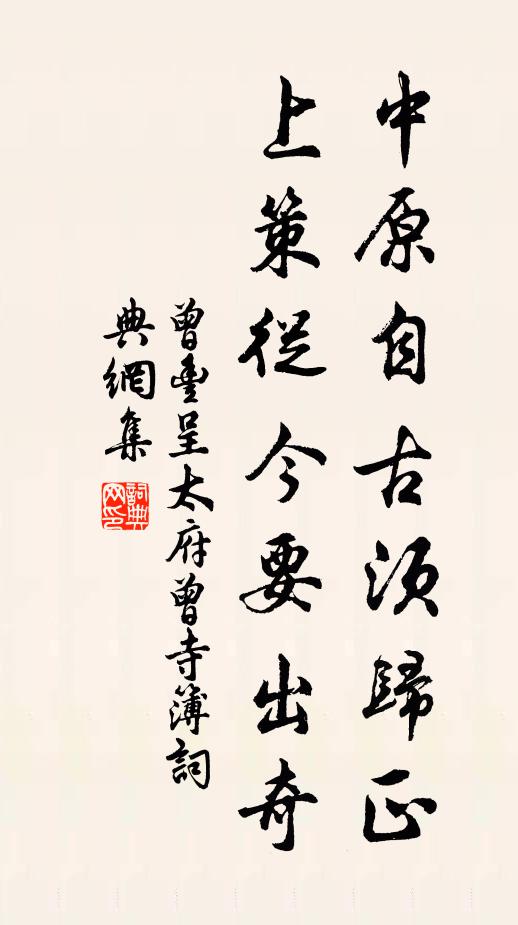 中原自古須歸正
上策從今要出奇
曾豐呈太府曾寺簿詞
典網集
詞典网印